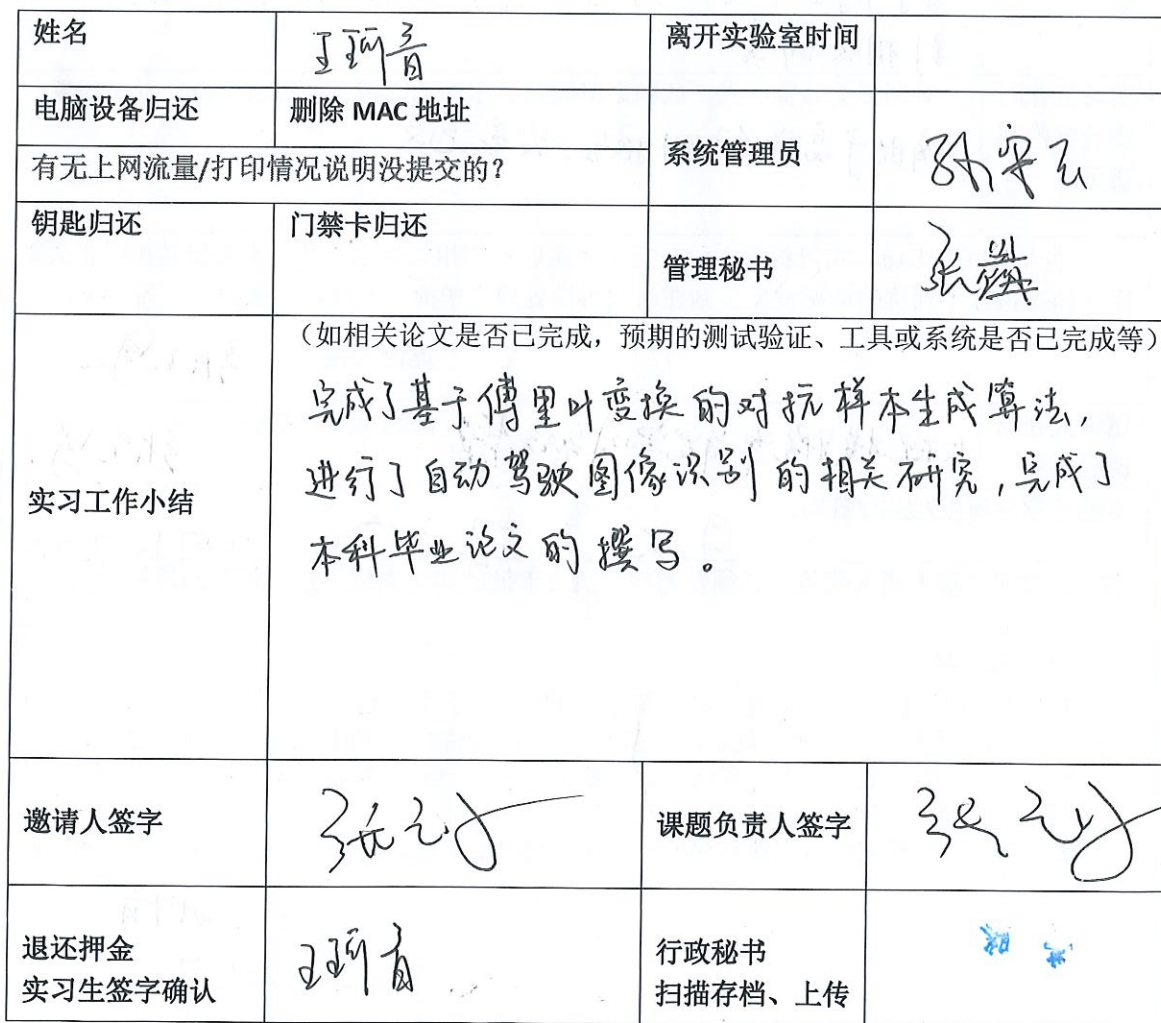 姓名 王珂音 离开实验室时间
电脑设备归还 删除 MAC 地址
系统管理员
有无上网流量/打印情况说明没提交的？
钥匙归还 门禁卡归还
管理秘书
（如相关论文是否已完成，预期的测试验证、工具或系统是否已完成等）
完成了基于傅里叶变换的对抗样本生成算法，
实习工作小结 进行了自动驾驶图像识别的相关研究，完成了
本科毕业论文的撰写。
邀请人签字 课题负责人签字
退还押金 行政秘书
实习生签字确认 王珂音 扫描存档、上传